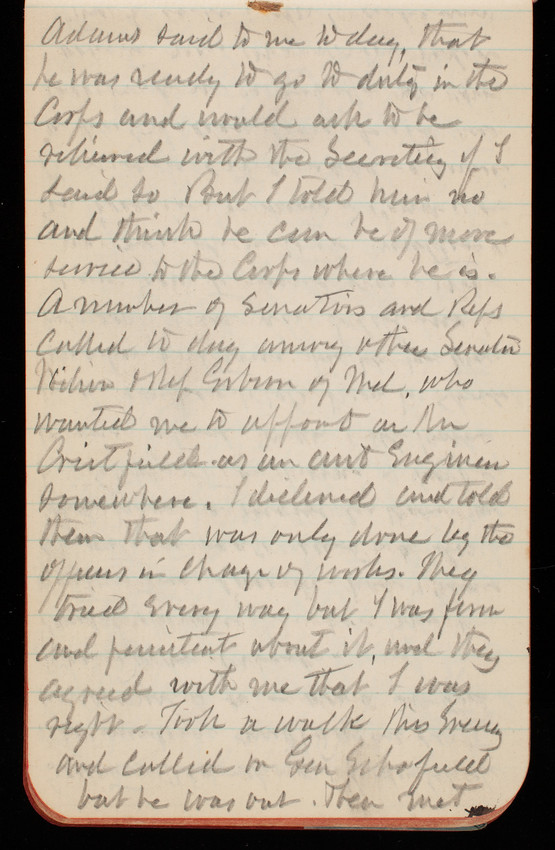 Adams said to me to day, that
he was ready to go to duty in the
Corps and would ask to be
relieved with the Secretary if I
said so But I told him no
and think he can be of more
service to the Corps where he is.
A number of Senators and Reps
called to day among others Senator
Wilson & Rep Gibson of Md. who
wanted me to appoint a Mr
Cristfield as an asst Engineer
somewhere. I declined and told
them that was only done by the
officers in charge of works. They
tried every way but I was firm
and persistent about it, and they
agreed with me that I was
right. Took a walk this Evening
and called on Gen Schofield
but he was out. Then met